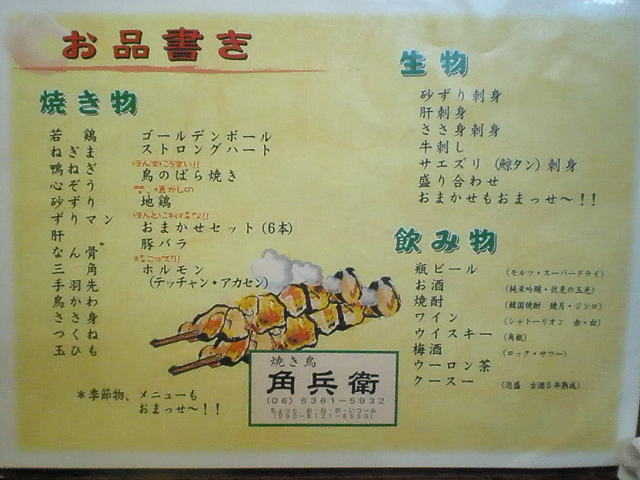 お品書き
焼き物
若鶏
ねぎま
鴨ねぎ
心ぞう
砂ずり
ずりマン
肝
なん骨
三角
手羽先
鳥かわ
ささ身
つくね
玉ひも
ゴールデンボール
ストロングハート
ほんまにうまい!!
鳥のばら焼き
地鶏
おまかせセット(6本)
豚バラ
ホルモン
(テッチャン・アカセン)
*季節物、メニューも
おまっせ〜!!
生物
砂ずり刺身
肝刺身
ささ身刺身
牛刺し
サエズリ(鯨タン)刺身
盛り合わせ
おまかせもおまっせ〜!!
飲み物
瓶ビール (モルツ・スーパードライ)
お酒 (純米吟醸・伏見の玉光)
焼酎 (韓国焼酎 鏡月・ジンロ)
ワイン (シャトーリオン 赤・白)
ウイスキー (角瓶)
梅酒 (ロック・サワー)
ウーロン茶
クースー (泡盛 古酒5年熟成)
焼き鳥
角兵衛
(06) 6361-5932